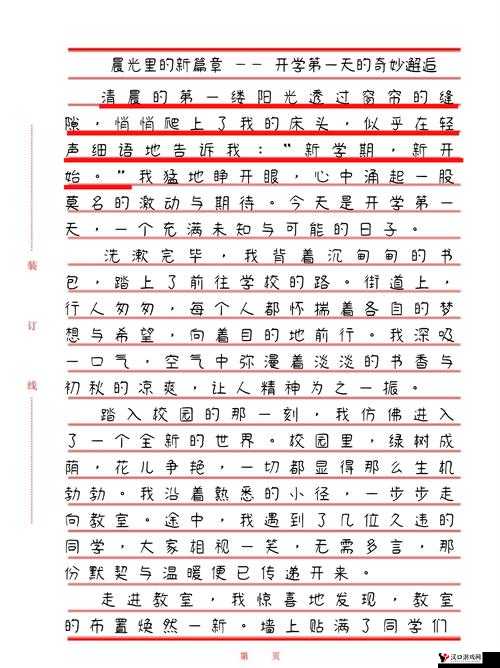 晨光里的新篇章 -- 开学第一天的奇妙邂逅
清晨的第一缕阳光透过窗帘的缝
隙，悄悄爬上了我的床头，似乎在轻
声细语地告诉我："新学期，新开
始。"我猛地睁开眼，心中涌起一股
莫名的激动与期待。今天是开学第一
天，一个充满未知与可能的日子。
洗漱完毕，我背着沉甸甸的书
包，踏上了前往学校的路。街道上，
行人匆匆，每个人都怀揣着各自的梦
想与希望，向着目的地前行。我深吸
一口气，空气中弥漫着淡淡的书香与
初秋的凉爽，让人精神为之一振。
踏入校园的那一刻，我仿佛进入
了一个全新的世界。校园里，绿树成
荫，花儿争艳，一切都显得那么生机
勃勃。我沿着熟悉的小径，一步步走
向教室。途中，我遇到了几位久违的
同学，大家相视一笑，无需多言，那
份默契与温暖便已传递开来。
走进教室，我惊喜地发现，教室
的布置焕然一新。墙上贴满了同学们
装
订
线
第 页
汉口游戏网